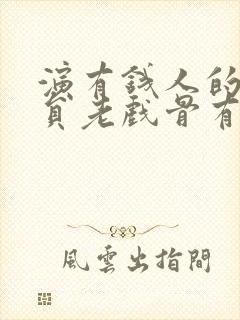 演有钱人的
员老戏骨有
風雲出指間